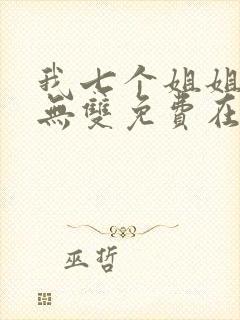 我七个姐姐
無雙免費在
巫哲